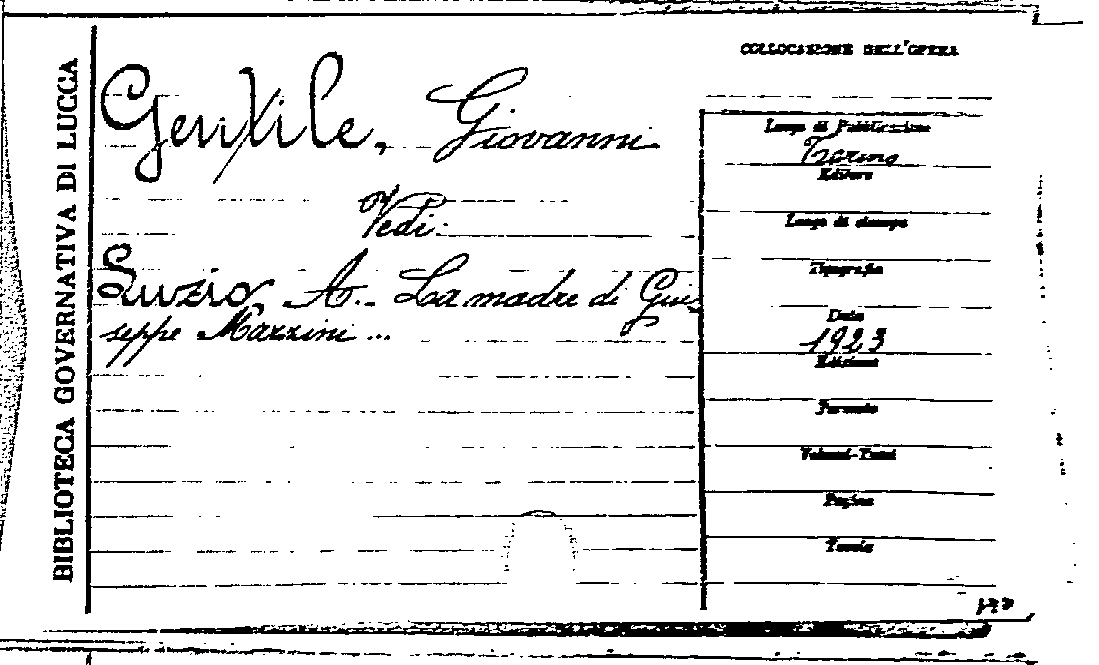 BIBLIOTECA GOVERNATIVA DI LUCCA
Gentile, Giovanni
Vedi:
Luzio, A. - La madre di Giu-
seppe Mazzini ...
COLLOCAZIONE DELL'OPERA
Luogo di Pubblicazione
Torino
Editore
Luogo di stampa
Tipografia
Data
1923
Edizione
Formato
Volumi-Tomi
Pagine
Tavole